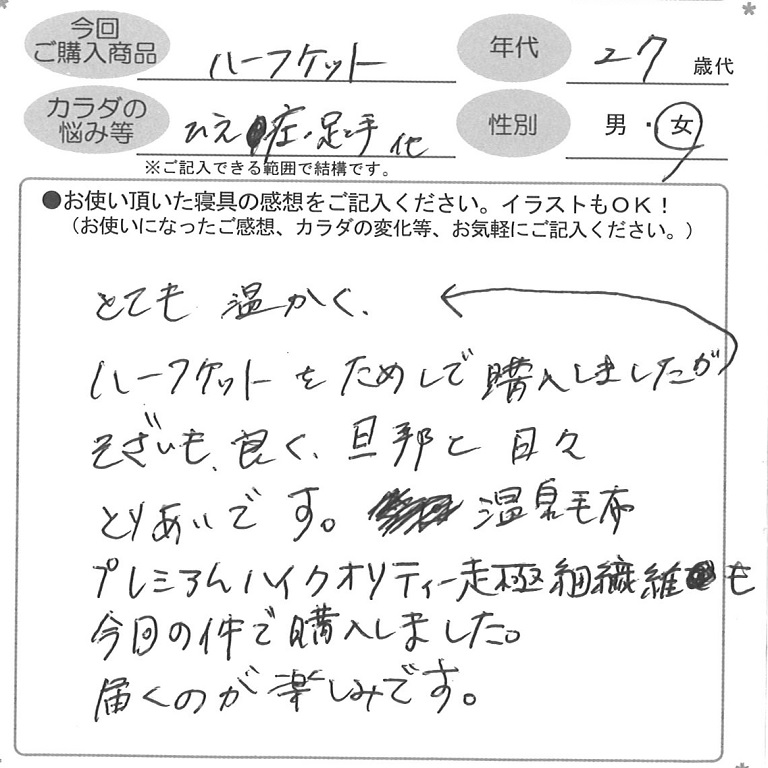 今回
ご購入商品
ハーフケット
年代
27
歳代
カラダの
悩み等
ひえ症・足と手 他
性別
男・女
※ご記入できる範囲で結構です。
●お使い頂いた寝具の感想をご記入ください。イラストもOK!
(お使いになったご感想、カラダの変化等、お気軽にご記入ください。)
とても 温かく、
ハーフケットをためしで購入しましたが
そざいも、良く、旦那と 日々
とりあいです。 温泉毛布
プレミアムハイクオリティー走極細繊維も
今回の件で購入しました。
届くのが楽しみです。